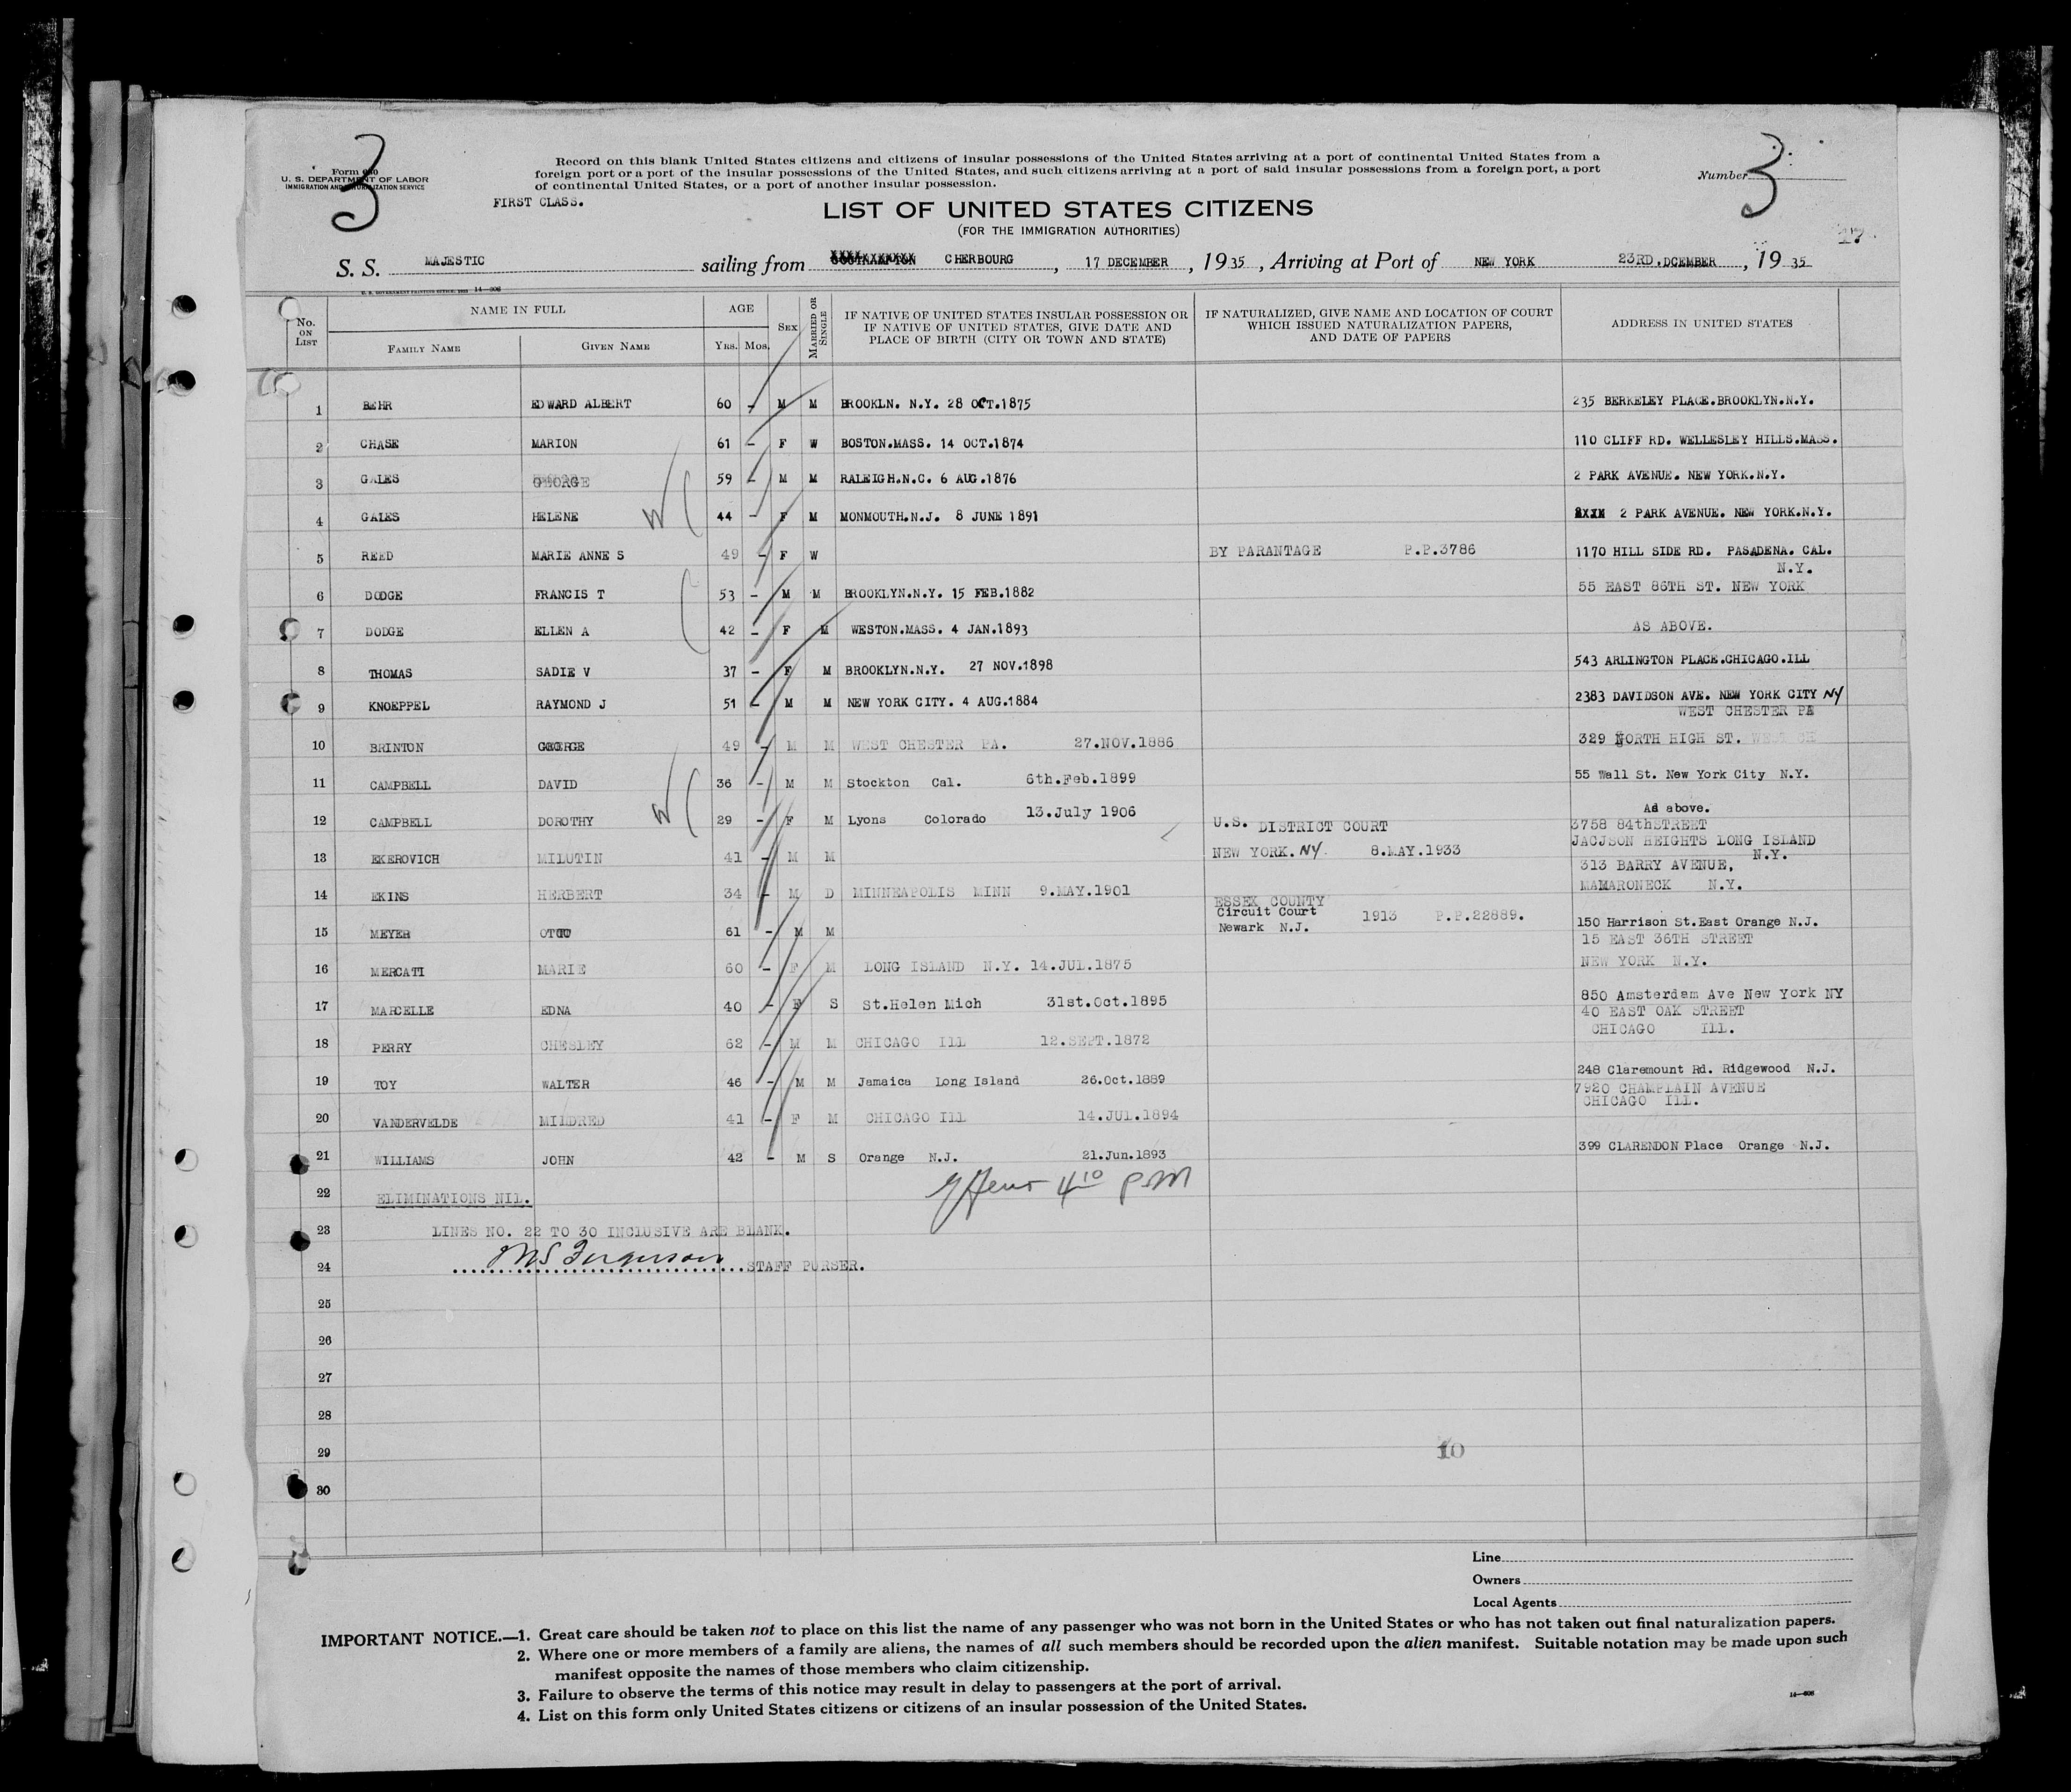 3
Form 630
U. S. DEPARTMENT OF LABOR
IMMIGRATION AND NATURALIZATION SERVICE
Record on this blank United States citizens and citizens of insular possessions of the United States arriving at a port of continental United States from a
foreign port or a port of the insular possessions of the United States, and such citizens arriving at a port of said insular possessions from a foreign port, a port
of continental United States, or a port of another insular possession.
Number 3
FIRST CLASS.
LIST OF UNITED STATES CITIZENS
(FOR THE IMMIGRATION AUTHORITIES)
17
S. S. MAJESTIC sailing from CHERBOURG, 17 DECEMBER, 1935, Arriving at Port of NEW YORK 23RD.DCEMBER, 1935
U. S. GOVERNMENT PRINTING OFFICE: 1933 14—606
No. ON LIST NAME IN FULL AGE SEX MARRIED OR SINGLE IF NATIVE OF UNITED STATES INSULAR POSSESSION OR IF NATIVE OF UNITED STATES, GIVE DATE AND PLACE OF BIRTH (CITY OR TOWN AND STATE) IF NATURALIZED, GIVE NAME AND LOCATION OF COURT WHICH ISSUED NATURALIZATION PAPERS, AND DATE OF PAPERS ADDRESS IN UNITED STATES
FAMILY NAME GIVEN NAME YRS. MOS.
1 BEHR EDWARD ALBERT 60 - M M BROOKLN. N.Y. 28 OCT.1875 235 BERKELEY PLACE.BROOKLYN.N.Y.
2 CHASE MARION 61 - F W BOSTON.MASS. 14 OCT.1874 110 CLIFF RD. WELLESLEY HILLS.MASS.
3 GALES GEORGE 59 - M M RALEIGH.N.C. 6 AUG.1876 2 PARK AVENUE. NEW YORK.N.Y.
4 GALES HELENE 44 - F M MONMOUTH.N.J. 8 JUNE 1891 2 PARK AVENUE. NEW YORK.N.Y.
5 REED MARIE ANNE S 49 - F W BY PARANTAGE P.P.3786 1170 HILL SIDE RD. PASADENA. CAL.
N.Y.
6 DODGE FRANCIS T 53 - M M BROOKLYN.N.Y. 15 FEB.1882 55 EAST 86TH ST. NEW YORK
7 DODGE ELLEN A 42 - F M WESTON.MASS. 4 JAN.1893 AS ABOVE.
8 THOMAS SADIE V 37 - F M BROOKLYN.N.Y. 27 NOV.1898 543 ARLINGTON PLACE.CHICAGO.ILL
9 KNOEPPEL RAYMOND J 51 - M M NEW YORK CITY. 4 AUG.1884 2383 DAVIDSON AVE. NEW YORK CITY NY
WEST CHESTER PA
10 BRINTON GEORGE 49 - M M WEST CHESTER PA. 27.NOV.1886 329 NORTH HIGH ST. WEST CH
11 CAMPBELL DAVID 36 - M M Stockton Cal. 6th.Feb.1899 55 Wall St. New York City N.Y.
12 CAMPBELL DOROTHY 29 - F M Lyons Colorado 13.July 1906 As above.
U.S. DISTRICT COURT 3758 84thSTREET
JACJSON HEIGHTS LONG ISLAND
13 EKEROVICH MILUTIN 41 - M M NEW YORK. NY. 8.MAY.1933 N.Y.
313 BARRY AVENUE,
14 EKINS HERBERT 34 - M D MINNEAPOLIS MINN 9.MAY.1901 MAMARONECK N.Y.
ESSEX COUNTY
Circuit Court 1913 P.P.22889.
15 MEYER OTTO 61 - M M Newark N.J. 150 Harrison St.East Orange N.J.
15 EAST 36TH STREET
16 MERCATI MARIE 60 - F M LONG ISLAND N.Y. 14.JUL.1875 NEW YORK N.Y.
17 MARCELLE EDNA 40 - F S St.Helen Mich 31st.Oct.1895 850 Amsterdam Ave New York NY
40 EAST OAK STREET
18 PERRY CHESLEY 62 - M M CHICAGO ILL 12.SEPT.1872 CHICAGO ILL.
19 TOY WALTER 46 - M M Jamaica Long Island 26.Oct.1889 248 Claremount Rd. Ridgewood N.J.
7920 CHAMPLAIN AVENUE
20 VANDERVELDE MILDRED 41 - F M CHICAGO ILL 14.JUL.1894 CHICAGO ILL.
21 WILLIAMS JOHN 42 - M S Orange N.J. 21.Jun.1893 399 CLARENDON Place Orange N.J.
22 ELIMINATIONS NIL. 4 10 PM
23 LINES NO. 22 TO 30 INCLUSIVE ARE BLANK.
24 MS Ferguson STAFF PURSER.
25
26
27
28
29 10
30
Line
Owners
Local Agents
IMPORTANT NOTICE.—1. Great care should be taken not to place on this list the name of any passenger who was not born in the United States or who has not taken out final naturalization papers.
2. Where one or more members of a family are aliens, the names of all such members should be recorded upon the alien manifest. Suitable notation may be made upon such
manifest opposite the names of those members who claim citizenship.
3. Failure to observe the terms of this notice may result in delay to passengers at the port of arrival.
4. List on this form only United States citizens or citizens of an insular possession of the United States.
14—606